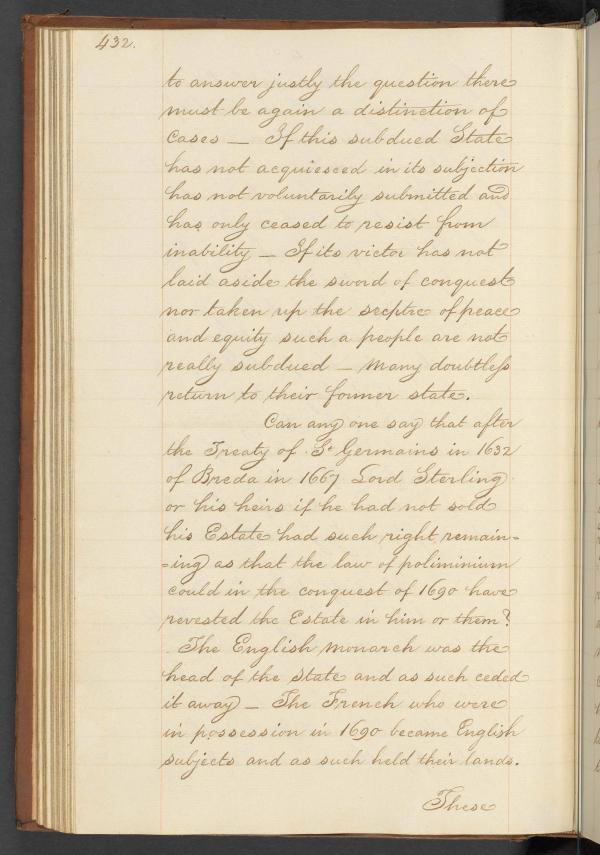 432.
to answer justly the question there
must be again a distinction of
Cases — If this subdued State
has not acquiesced in its subjection
has not voluntarily submitted and
has only ceased to resist from
inability — If its victor has not
laid aside the sword of conquest
nor taken up the sceptre of peace
and equity such a people are not
really subdued — Many doubtless
return to their former state.
Can any one say that after
the Treaty of St Germains in 1632
of Breda in 1667 Lord Sterling
or his heirs if he had not sold
his Estate had such right remain-
-ing as that the law of poliminium
could in the conquest of 1690 have
revested the Estate in him or them?
The English Monarch was the
head of the state and as such ceded
it away — The French who were
in possession in 1690 became English
subjects and as such held their lands.
These